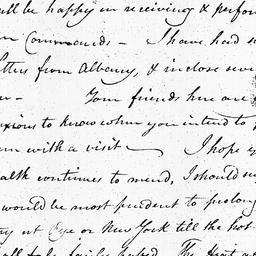 ll be happy in receiving & perfor
Commands — I have had s
tters from Albany, & inclose seve
Your friends here are
anxious to know when you intend to
with a visit — I hope y
alth continues to mend, I should su
would be most prudent to prolong
at Rye or New York till the hot
The Heat